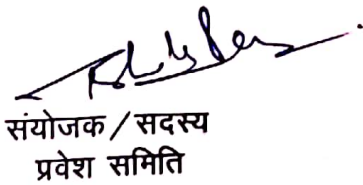 संयोजक / सदस्य
प्रवेश समिति